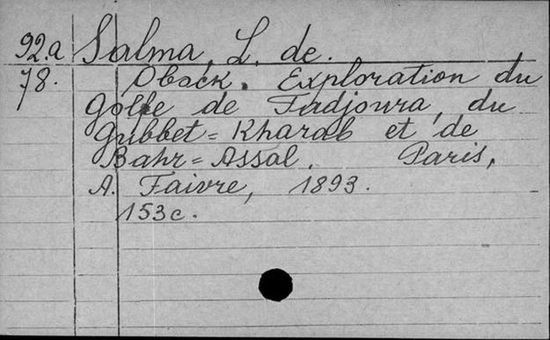 92.a Salma, L. de.
78. Obock. Exploration du
Golfe de Tadjoura, du
Gubbet=Kharab et de
Bahr=Assal. Paris,
A. Faivre, 1893.
153c.